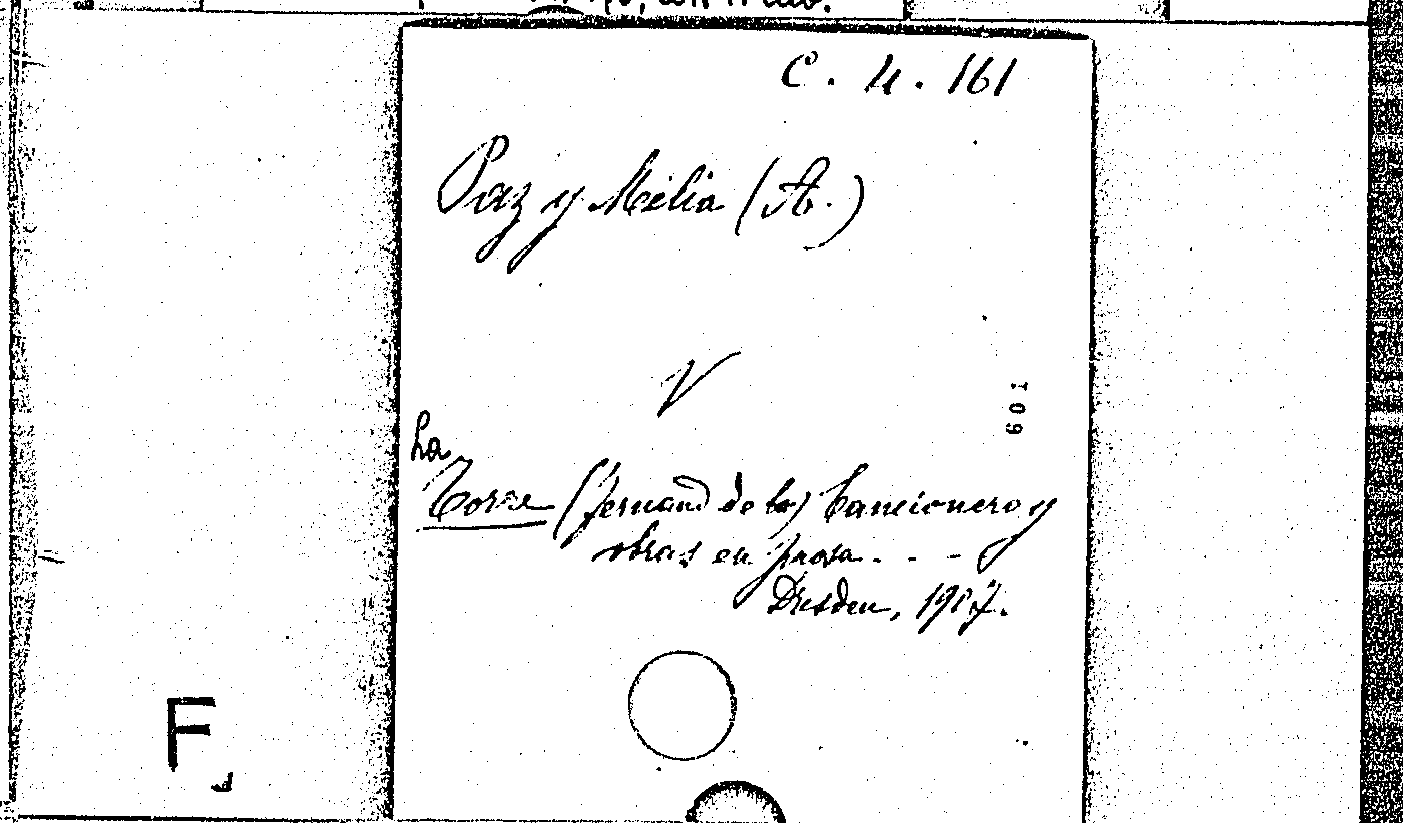 C. 4. 161
Paz y Mélia (A.)
V
601
La
Torre (Fernand de la) Cancionero y
obras en prosa . . -
Dresden, 1907.
F